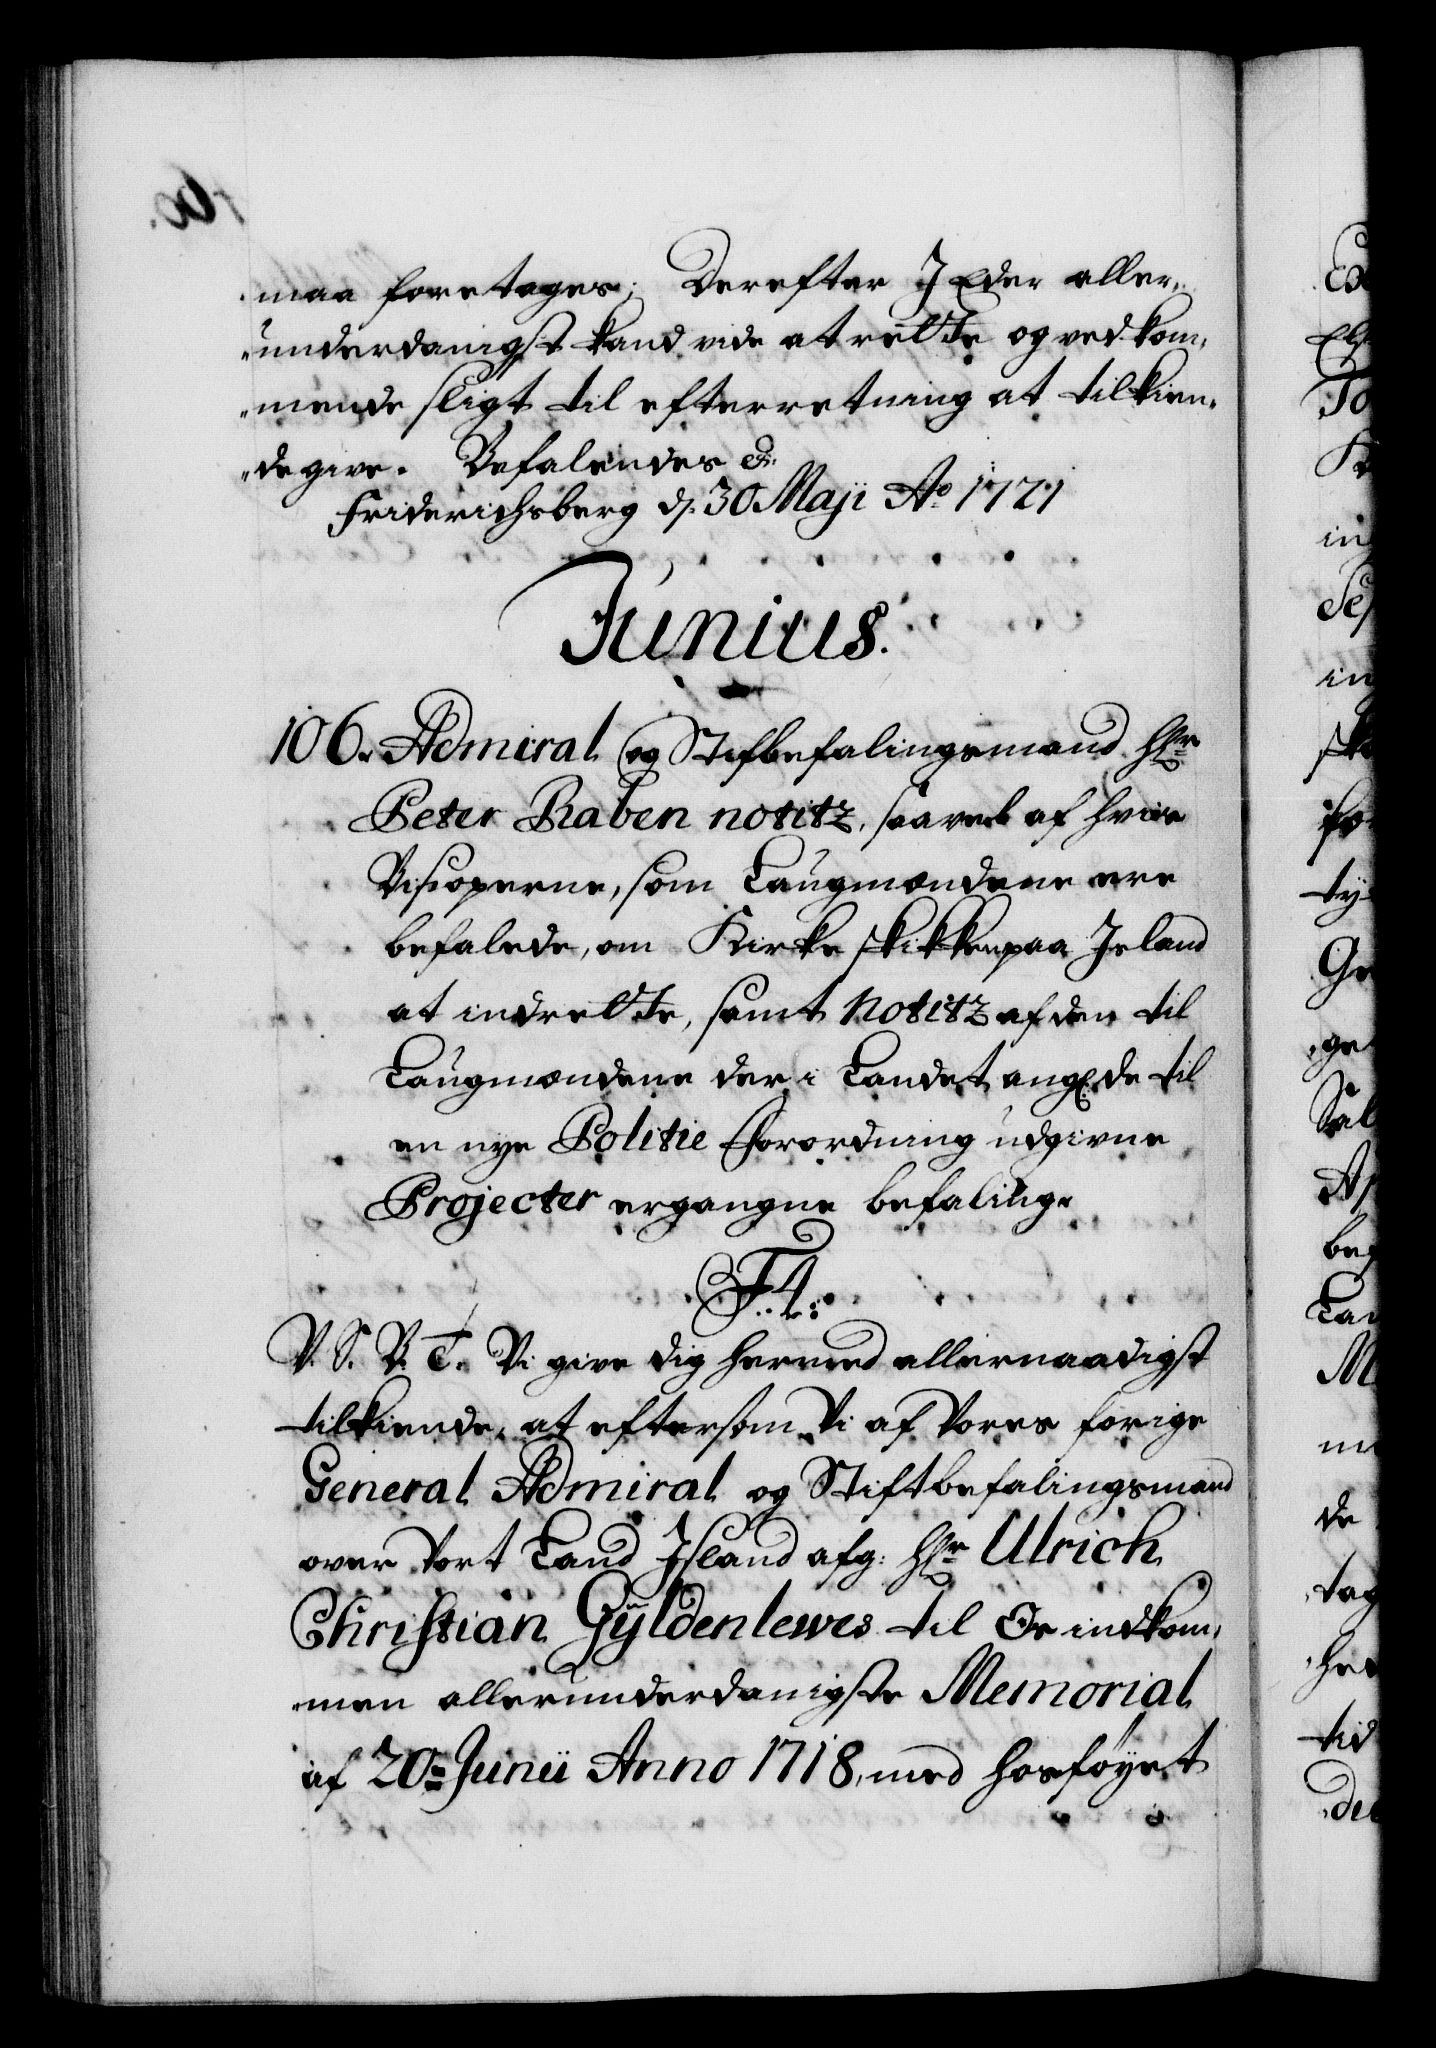 maa foretages; Derefter I Eder aller„
„underdanigst kand vide at rette og vedkom„
„mende sligt til efterretning at tilkien„
„de give. Befalendes &.
Friderichsberg d: 30 Maji Ao 1721
Junius.
106. Admiral og Stifbefalingsmand Hr
Peter Raben notitz, saavel af hvis
Bisperne, som Laugmændene ere
befalede, om Kirke skikken paa Island
at indrette, samt Notitz af den til
Laugmændene der i Landet ang de til
en nye Politie Forordning udgivne
Projecter ergangne befaling.
F4.
V. S. B. T. Vi give dig hermed allernaadigst
tilkiende, at eftersom Vi af Vores forige
General Admiral og Stiftbefalingsmand
over Vort Land Island afg: Hr Ulrich
Christian Gyldenlewes til Os indkom„
„men allerunderdanigste Memorial
af 20de Junii Anno 1718, med hosføyet